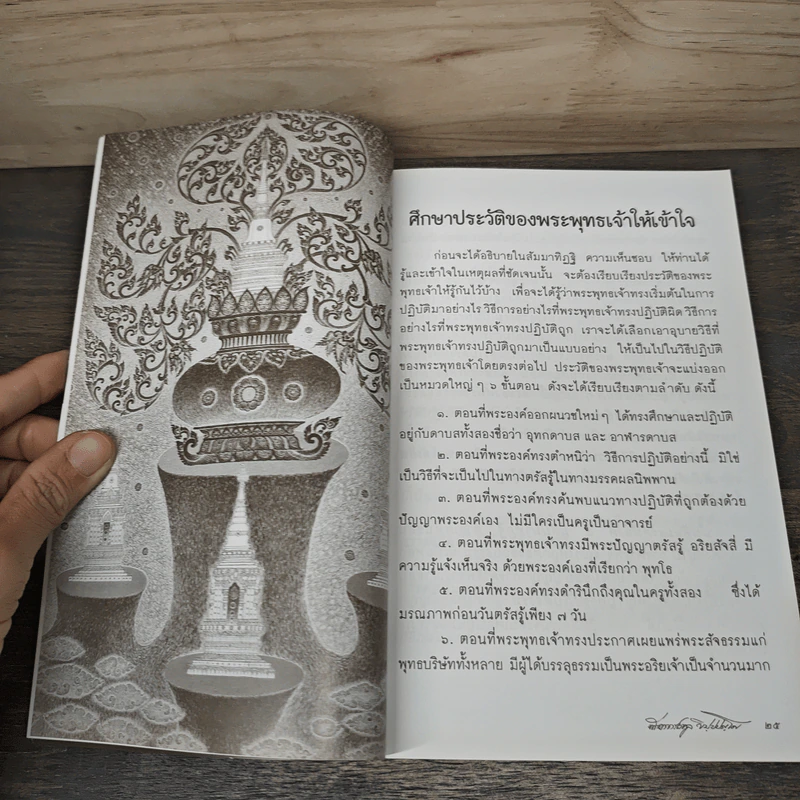 ศึกษาประวัติของพระพุทธเจ้าให้เข้าใจ
ก่อนจะได้อธิบายในสัมมาทิฏฐิ ความเห็นชอบ ให้ท่านได้
รู้และเข้าใจในเหตุผลที่ชัดเจนนั้น จะต้องเรียบเรียงประวัติของพระ
พุทธเจ้าให้รู้กันไว้บ้าง เพื่อจะได้รู้ว่าพระพุทธเจ้าทรงเริ่มต้นในการ
ปฏิบัติมาอย่างไร วิธีการอย่างไรที่พระพุทธเจ้าทรงปฏิบัติผิด วิธีการ
อย่างไรที่พระพุทธเจ้าทรงปฏิบัติถูก เราจะได้เลือกเอาอุบายวิธีที่
พระพุทธเจ้าทรงปฏิบัติถูกมาเป็นแบบอย่าง ให้เป็นไปในวิธีปฏิบัติ
ของพระพุทธเจ้าโดยตรงต่อไป ประวัติของพระพุทธเจ้าจะแบ่งออก
เป็นหมวดใหญ่ ๆ ๖ ขั้นตอน ดังจะได้เรียบเรียงตามลำดับ ดังนี้
๑. ตอนที่พระองค์ออกผนวชใหม่ ๆ ได้ทรงศึกษาและปฏิบัติ
อยู่กับดาบสทั้งสองชื่อว่า อุทกดาบส และ อาฬารดาบส
๒. ตอนที่พระองค์ทรงตำหนิว่า วิธีการปฏิบัติอย่างนี้ มิใช่
เป็นวิธีที่จะเป็นไปในทางตรัสรู้ในทางมรรคผลนิพพาน
๓. ตอนที่พระองค์ทรงค้นพบแนวทางปฏิบัติที่ถูกต้องด้วย
ปัญญาพระองค์เอง ไม่มีใครเป็นครูเป็นอาจารย์
๔. ตอนที่พระพุทธเจ้าทรงมีพระปัญญาตรัสรู้ อริยสัจสี่ มี
ความรู้แจ้งเห็นจริง ด้วยพระองค์เองที่เรียกว่า พุทโธ
๕. ตอนที่พระองค์ทรงดำรินึกถึงคุณในครูทั้งสอง ซึ่งได้
มรณภาพก่อนวันตรัสรู้เพียง ๗ วัน
๖. ตอนที่พระพุทธเจ้าทรงประกาศเผยแพร่พระสัจธรรมแก่
พุทธบริษัททั้งหลาย มีผู้ได้บรรลุธรรมเป็นพระอริยเจ้าเป็นจำนวนมาก
๒๕